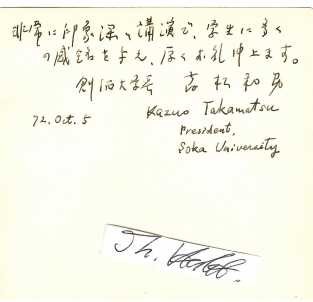 非常に印象深い講演で、学生に多く
の感銘を与え、厚くお礼申上ます。
創価大学長 高松和男
72. Oct. 5 Kazuo Takamatsu
President,
Soka University
Th.